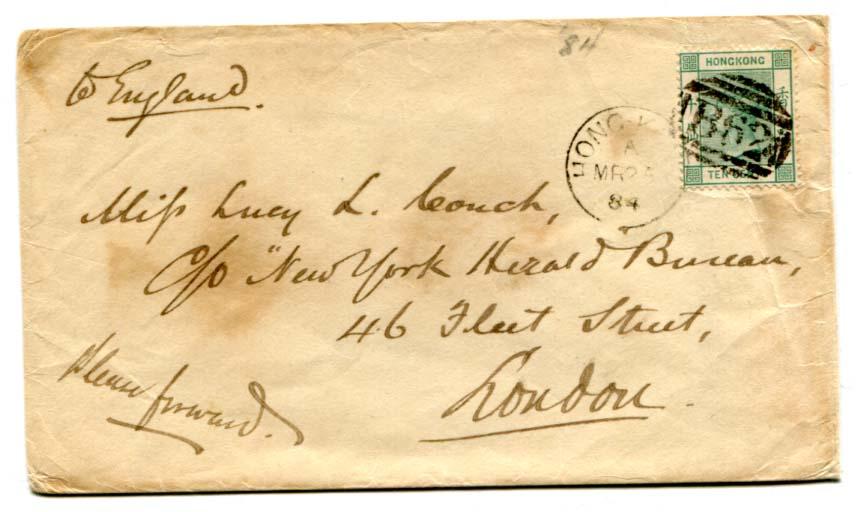 '84
to England.
HONGKONG
B62
HONG K
A
MR 24
84
TEN CE
Miss Lucy L. Couch,
C/o "New York Herald" Bureau,
46 Fleet Street,
London.
Please forward.